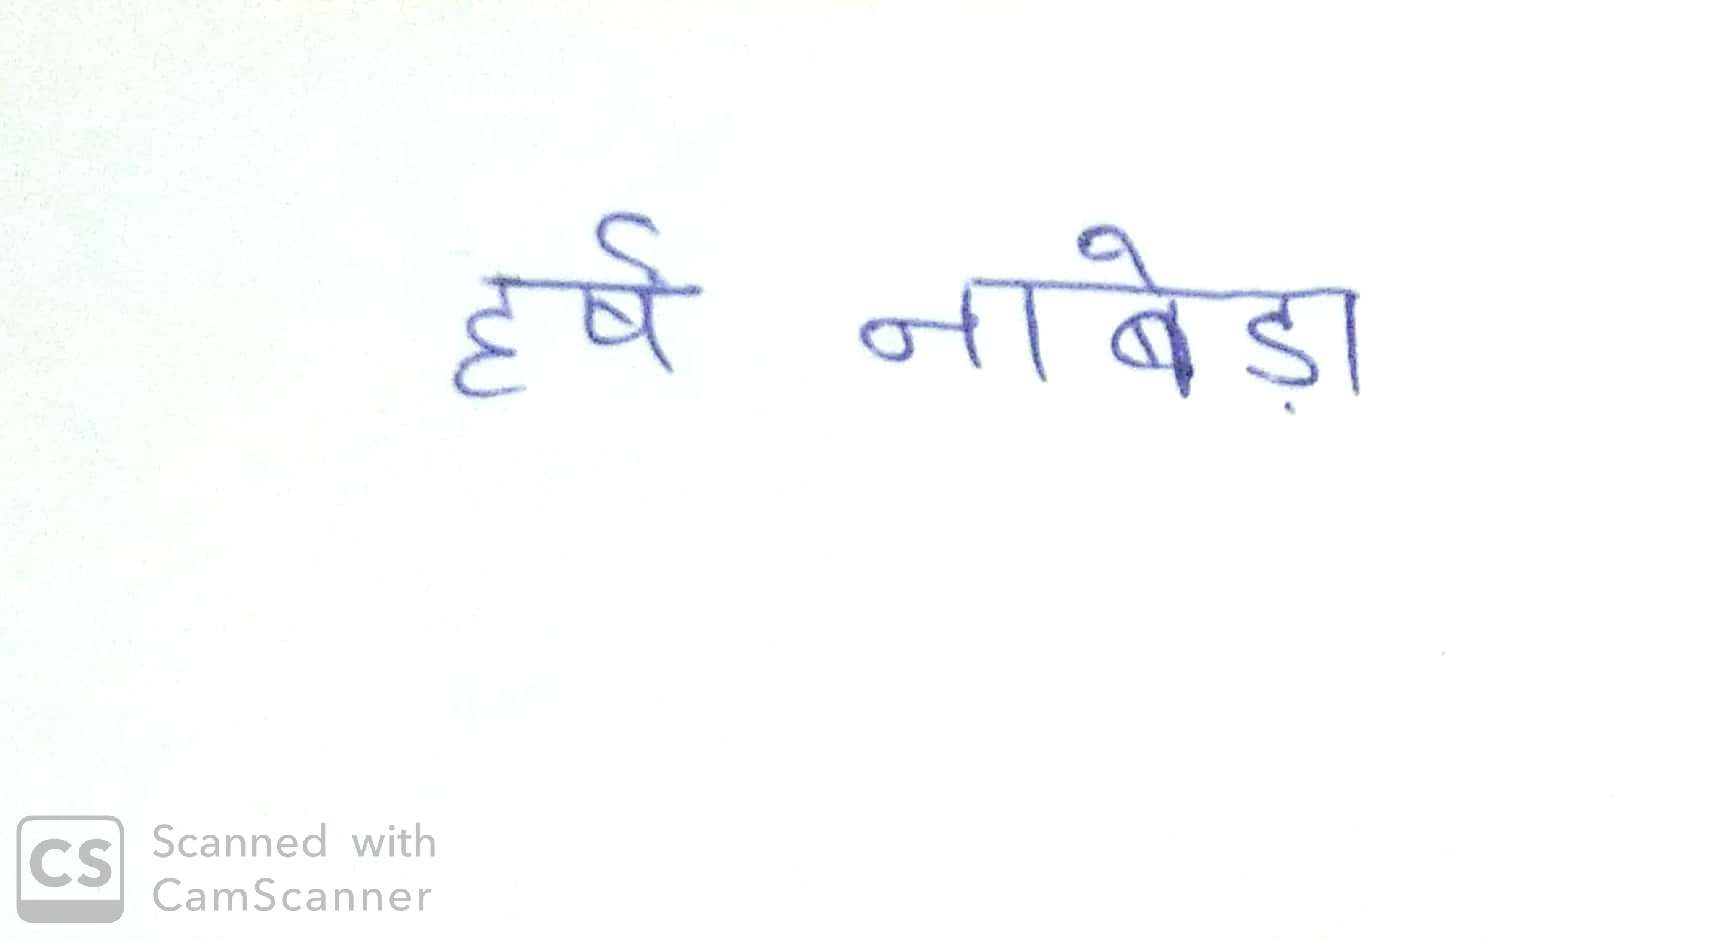 हर्ष नाबेड़ा
CS Scanned with
CamScanner